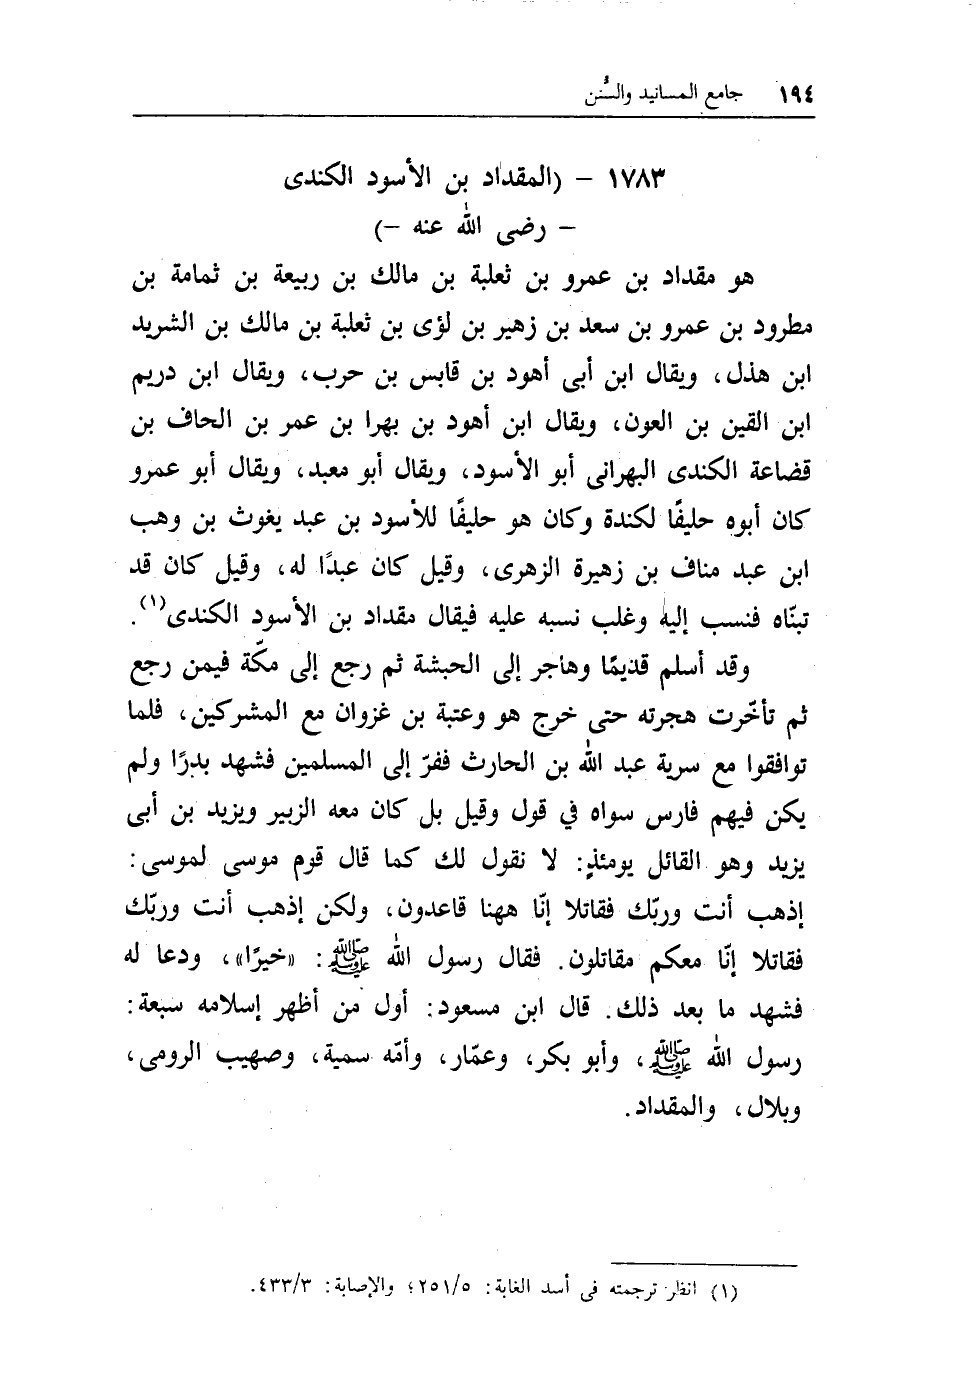 ١٩٤ جامع المسانيد والسُّنن
١٧٨٣ – (المقداد بن الأسود الكندى
– رضى الله عنه –)
هو مقداد بن عمرو بن ثعلبة بن مالك بن ربيعة بن ثمامة بن
مطرود بن عمرو بن سعد بن زهير بن لؤى بن ثعلبة بن مالك بن الشريد
ابن هذل، ويقال ابن أبى أهود بن قابس بن حرب، ويقال ابن دريم
ابن القين بن العون، ويقال ابن أهود بن بهرا بن عمر بن الحاف بن
قضاعة الكندى البهرانى أبو الأسود، ويقال أبو معبد، ويقال أبو عمرو
كان أبوه حليفًا لكندة وكان هو حليفًا للأسود بن عبد يغوث بن وهب
ابن عبد مناف بن زهيرة الزهرى، وقيل كان عبدًا له، وقيل كان قد
تبنّاه فنسب إليه وغلب نسبه عليه فيقال مقداد بن الأسود الكندى(١).
وقد أسلم قديمًا وهاجر إلى الحبشة ثم رجع إلى مكّة فيمن رجع
ثم تأخّرت هجرته حتى خرج هو وعتبة بن غزوان مع المشركين، فلما
توافقوا مع سرية عبد الله بن الحارث ففرّ إلى المسلمين فشهد بدرًا ولم
يكن فيهم فارس سواه في قول وقيل بل كان معه الزبير ويزيد بن أبى
يزيد وهو القائل يومئذٍ: لا نقول لك كما قال قوم موسى لموسى:
إذهب أنت وربّك فقاتلا إنّا ههنا قاعدون، ولكن إذهب أنت وربّك
فقاتلا إنّا معكم مقاتلون. فقال رسول الله ﷺ: «خيرًا»، ودعا له
فشهد ما بعد ذلك. قال ابن مسعود: أول من أظهر إسلامه سبعة:
رسول الله ﷺ، وأبو بكر، وعمّار، وأمّه سمية، وصهيب الرومى،
وبلال، والمقداد.
(١) انظر ترجمته فى أسد الغابة: ٢٥١/٥؛ والإصابة: ٤٣٣/٣.